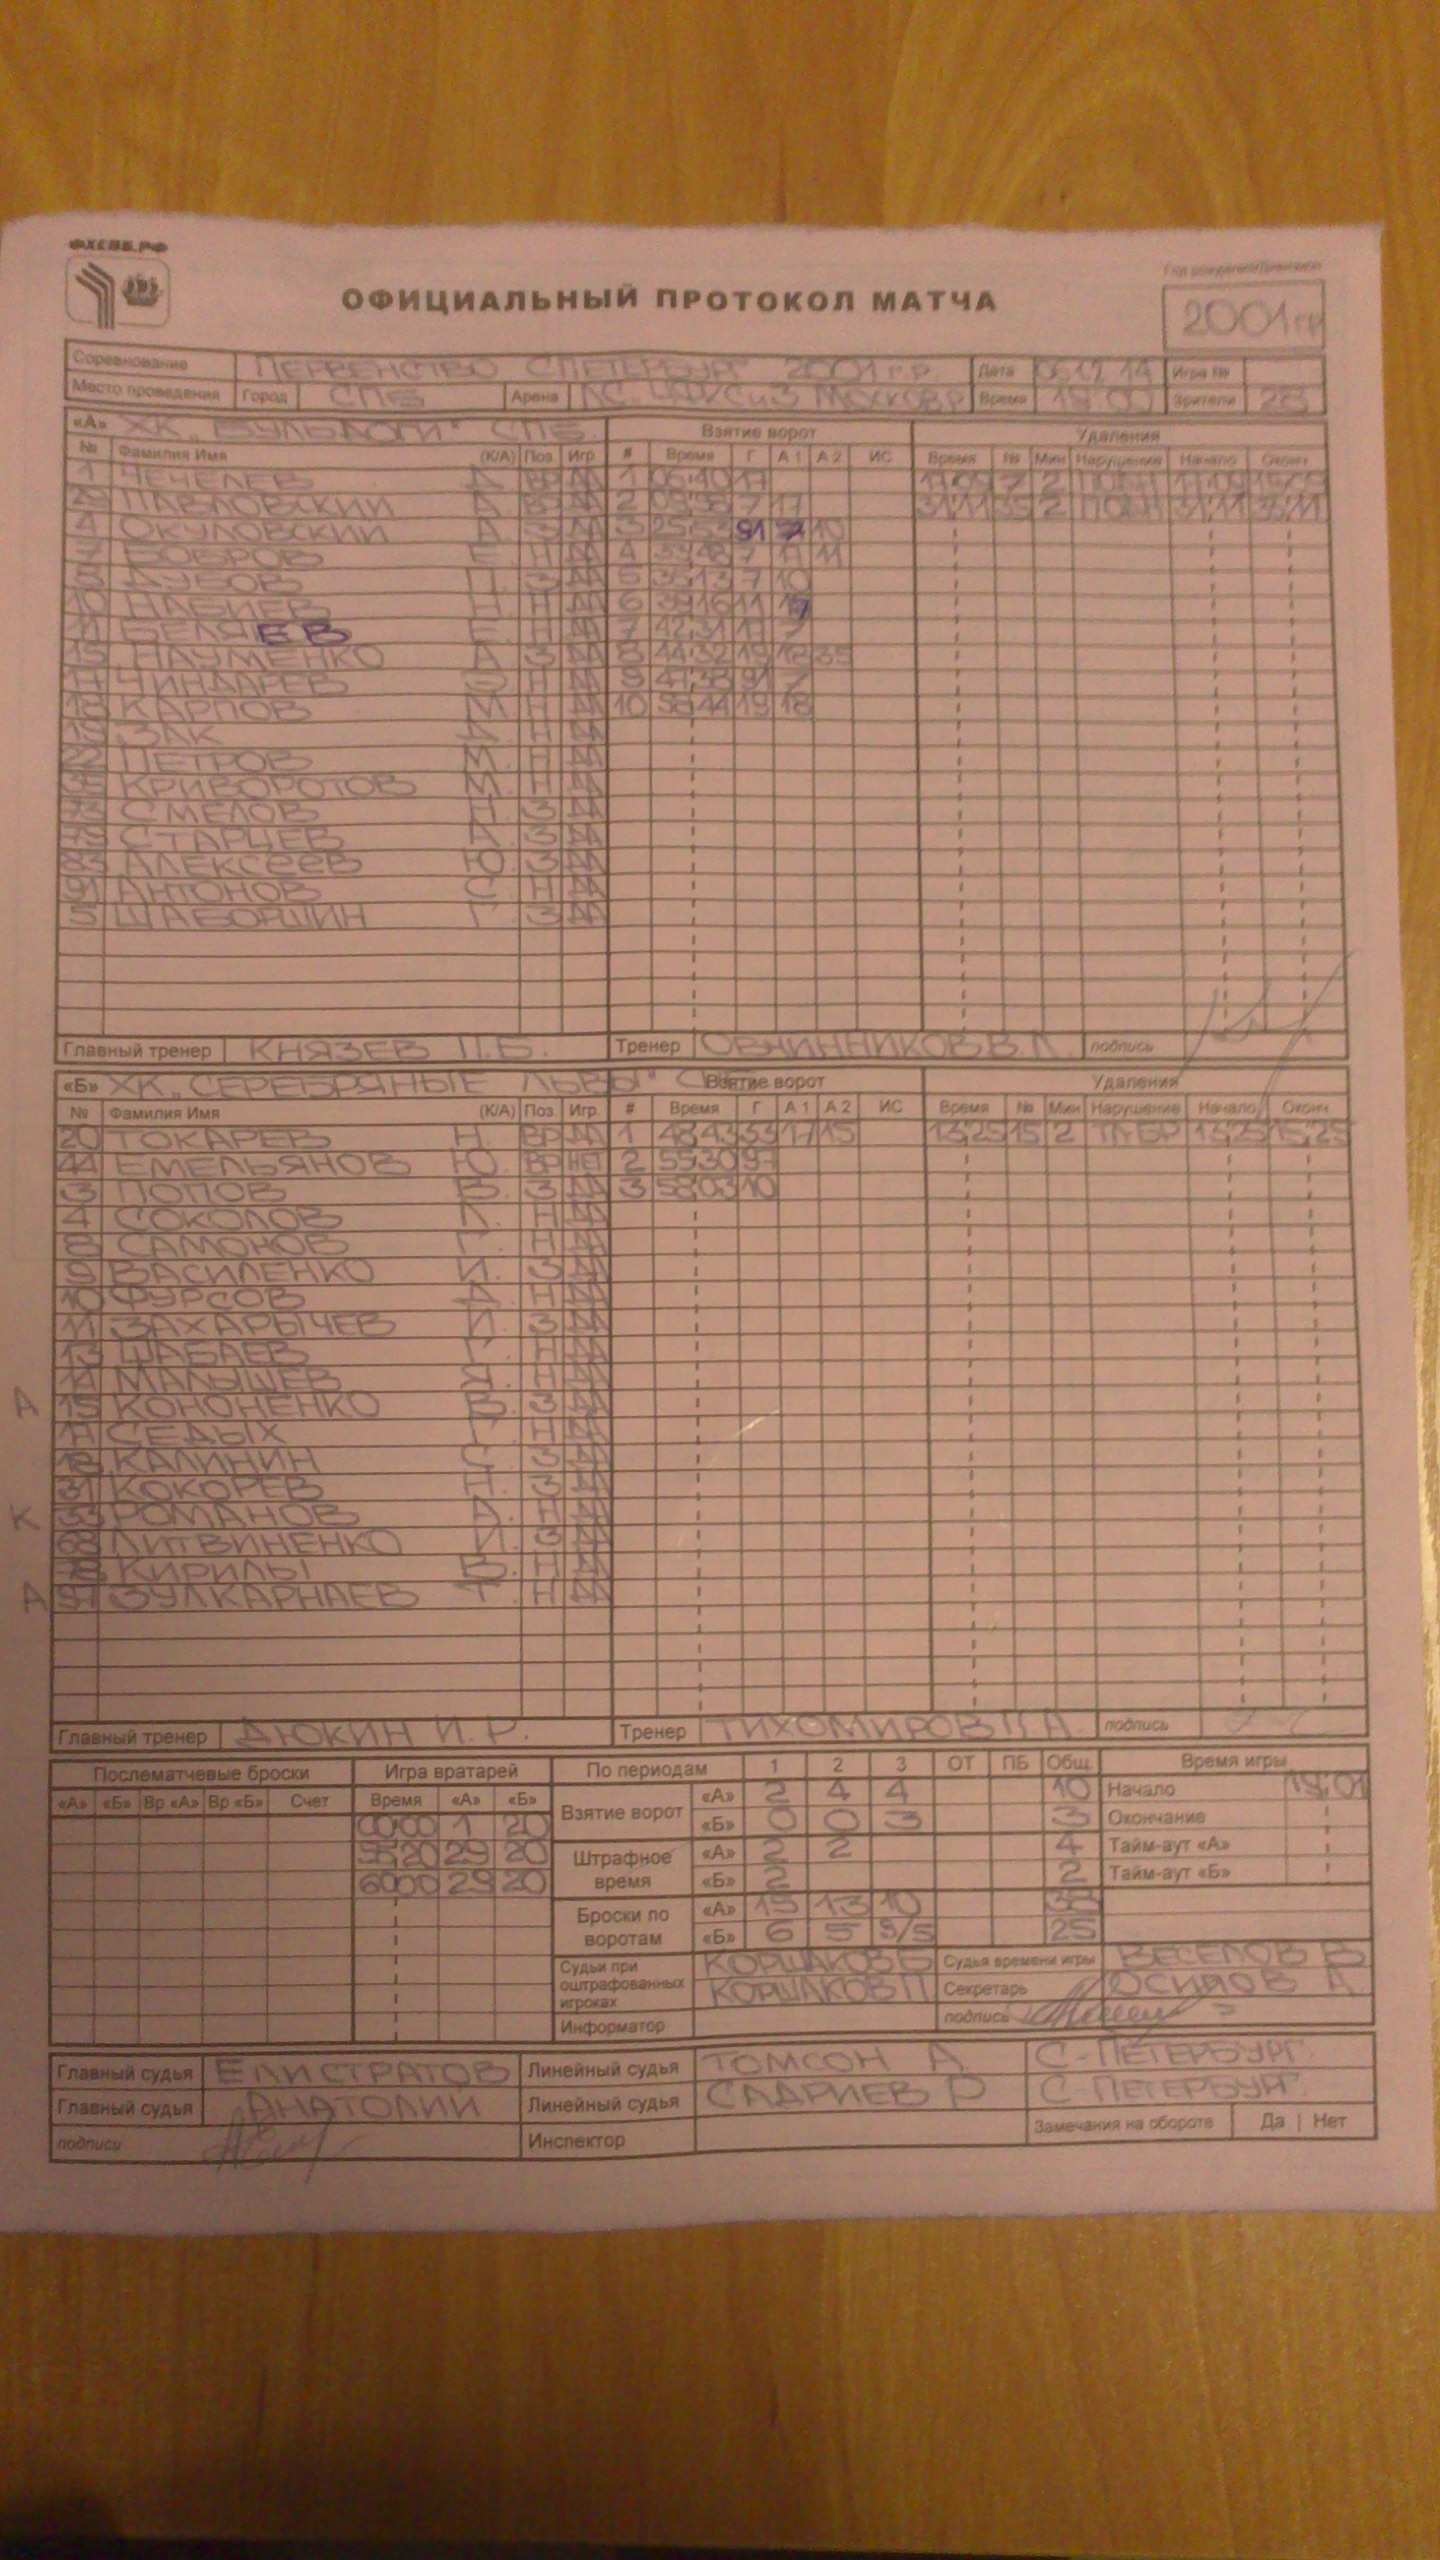 ФХСПБ.РФ
Год рождения/Дивизион
ОФИЦИАЛЬНЫЙ ПРОТОКОЛ МАТЧА
2001 г.р
Соревнование ПЕРВЕНСТВО С.ПЕТЕРБУРГ 2001 г.р. Дата 06.12.14 Игра №
Место проведения Город СПБ Арена Время 19:00 Зрители
«А» ХК "БУЛЬДОГИ" СПБ. Взятие ворот Удаления
№ Фамилия Имя (К/А) Поз. Игр. # Время Г А1 А2 ИС Время № Мин Нарушение Начало Оконч.
1 ЧЕЧЕЛЕВ А ВР ДА 1 06:40 17 17:09 7 2 17:09
29 ПАВЛОВСКИЙ А ВР ДА 2 7 17 31:11 35 2 31:11
4 ОКУЛОВСКИЙ А З ДА 3 25:53 91 7 10
7 БОБРОВ Е. Н ДА 4 7 17 11
ДУБОВ П. З ДА 5 35:13 7 10
10 НАБИЕВ Н. Н ДА 6 39:16 11 17
БЕЛЯЕВ Е. Н ДА 7 42:31 17 7
15 НАУМЕНКО А З ДА 8 44:32 19 18 35
17 ЧИНДАРЕВ Н ДА 9 47:38 91 7
18 КАРПОВ М Н ДА 10 58:44 19 18
19 ЗАК Н ДА
22 ПЕТРОВ М. Н ДА
35 КРИВОРОТОВ М. Н ДА
СМЕЛОВ З ДА
СТАРЦЕВ А. З ДА
83 АЛЕКСЕЕВ Ю. З ДА
91 АНТОНОВ С. Н ДА
5 ШАБОРШИН Г. З ДА
Главный тренер КНЯЗЕВ П.Б. Тренер ОВЧИННИКОВ В.Л. подпись
«Б» ХК "СЕРЕБРЯНЫЕ ЛЬВЫ" Взятие ворот Удаления
№ Фамилия Имя (К/А) Поз. Игр. # Время Г А1 А2 ИС Время № Мин Нарушение Начало Оконч.
20 ТОКАРЕВ Н. ВР ДА 1 48:43 33 17 15 13:25 15 2 13:25 15:25
44 ЕМЕЛЬЯНОВ Ю. ВР НЕТ 2 55:30 97
3 ПОПОВ В. З ДА 3 58:03 10
4 СОКОЛОВ Л. Н ДА
8 САМОНОВ Г. Н ДА
9 ВАСИЛЕНКО И. З ДА
10 ФУРСОВ Д. Н ДА
11 ЗАХАРЫЧЕВ И. З ДА
13 ШАБАЕВ Г. Н ДА
14 МАЛЫШЕВ Я. Н ДА
А 15 КОНОНЕНКО В. З ДА
17 СЕДЫХ Г. Н ДА
18 КАЛИНИН С. З ДА
31 КОКОРЕВ Н. З ДА
К 33 РОМАНОВ А. Н ДА
68 ЛИТВИНЕНКО И. З ДА
78 КИРИЛЫ В. Н ДА
А 97 ЗУЛКАРНАЕВ Т. Н ДА
Главный тренер ДЮКИН И.Р. Тренер ТИХОМИРОВ П.А. подпись
Послематчевые броски Игра вратарей По периодам 1 2 3 ОТ ПБ Общ. Время игры
«А» «Б» Вр «А» Вр «Б» Счет Время «А» «Б» Взятие ворот «А» 2 4 4 10 Начало 19:01
00:00 1 20 «Б» 0 0 3 3 Окончание
55:20 29 20 Штрафное время «А» 2 2 4 Тайм-аут «А»
60:00 29 20 «Б» 2 2 Тайм-аут «Б»
Броски по воротам «А» 15 13 10 38
«Б» 6 5 9/5 25
Судьи при оштрафованных игроках КОРШАКОВ Б Судья времени игры ВЕСЕЛОВ В
КОРШАКОВ П Секретарь ОСИПОВ А
Информатор подпись
Главный судья ЕЛИСТРАТОВ Линейный судья ТОМСОН А. С-ПЕТЕРБУРГ.
Главный судья АНАТОЛИЙ Линейный судья САДРИЕВ Р С-ПЕТЕРБУРГ.
подписи Инспектор Замечания на обороте Да | Нет